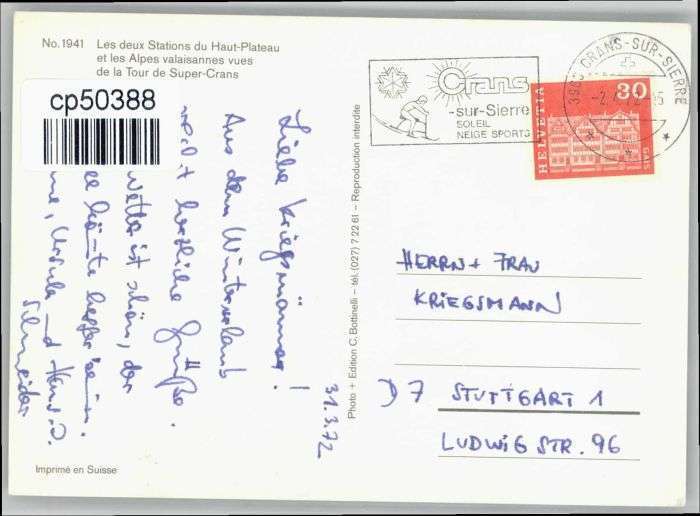 No. 1941 Les deux Stations du Haut-Plateau
et les Alpes valaisannes vues
de la Tour de Super-Crans
cp50388
Crans
-sur-Sierre
SOLEIL
NEIGE SPORTS
CRANS-SUR-SIERRE
HELVETIA
30
31.3.72
Liebe Kriegsmänner!
Aus dem Winterurlaub
herzliche Grüße.
Wetter ist schön, der
könnte besser sein.
Ursula und Hans D.
Schneider
Photo + Edition C. Bottinelli - tél. (027) 7 22 61 - Reproduction interdite
HERRN + FRAU
KRIEGSMANN
D 7 STUTTGART 1
LUDWIGSTR. 96
Imprimé en Suisse